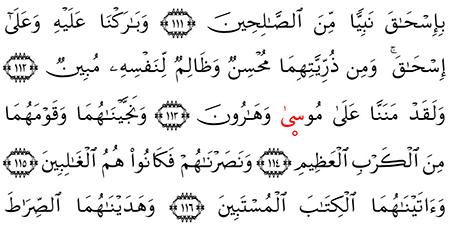 بِإِسْحَـٰقَ نَبِيًّا مِّنَ ٱلصَّـٰلِحِينَ ١١١ وَبَـٰرَكْنَا عَلَيْهِ وَعَلَىٰٓ
إِسْحَـٰقَ ۚ وَمِن ذُرِّيَّتِهِمَا مُحْسِنٌ وَظَالِمٌ لِّنَفْسِهِۦ مُبِينٌ ١١٢
وَلَقَدْ مَنَنَّا عَلَىٰ مُوسَىٰ وَهَـٰرُونَ ١١٣ وَنَجَّيْنَـٰهُمَا وَقَوْمَهُمَا
مِنَ ٱلْكَرْبِ ٱلْعَظِيمِ ١١٤ وَنَصَرْنَـٰهُمْ فَكَانُوا۟ هُمُ ٱلْغَـٰلِبِينَ ١١٥
وَءَاتَيْنَـٰهُمَا ٱلْكِتَـٰبَ ٱلْمُسْتَبِينَ ١١٦ وَهَدَيْنَـٰهُمَا ٱلصِّرَٰطَ